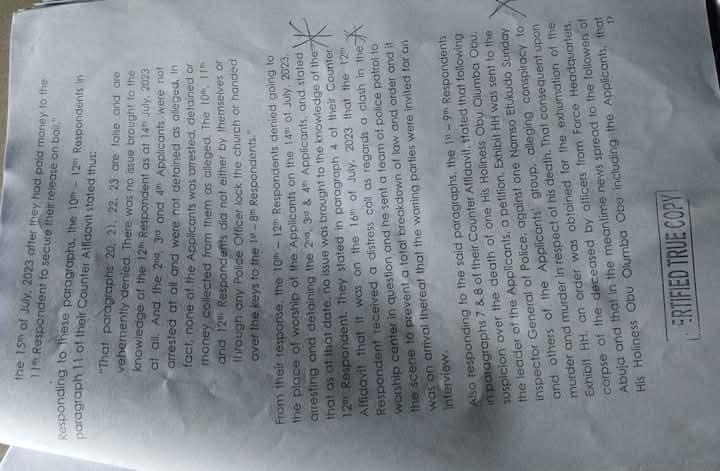 the 15th of July, 2023 after they had paid money to the
11th Respondent to secure their release on bail."
Responding to these paragraphs, the 10th – 12th Respondents in
paragraph 11 of their Counter Affidavit stated thus:
"That paragraphs 20, 21, 22, 23 are false and are
vehemently denied. There was no issue brought to the
knowledge of the 12th Respondent as at 14th July, 2023
at all. And the 2nd, 3rd and 4th Applicants were not
arrested at all and were not detained as alleged. In
fact, none of the Applicants was arrested, detained or
money collected from them as alleged. The 10th, 11th
and 12th Respondents did not either by themselves or
through any Police Officer lock the church or handed
over the keys to the 1st – 8th Respondents."
From their response, the 10th – 12th Respondents denied going to
the place of worship of the Applicants on the 14th of July, 2023,
arresting and detaining the 2nd, 3rd & 4th Applicants, and stated
that as at that date, no issue was brought to the knowledge of the
12th Respondent. They stated in paragraph 4 of their Counter
Affidavit that it was on the 16th of July, 2023 that the 12th
Respondent received a distress call as regards a clash in the
worship center in question and he sent a team of police patrol to
the scene to prevent a total breakdown of law and order and it
was on arrival thereat that the warring parties were invited for an
interview.
Also responding to the said paragraphs, the 1st – 9th Respondents
in paragraphs 7 & 8 of their Counter Affidavit, stated that following
suspicion over the death of one His Holiness Obu Olumba Obu,
the leader of the Applicants, a petition, Exhibit HH was sent to the
Inspector General of Police, against one Namso Etukudo Sunday
and others of the Applicants' group, alleging conspiracy to
murder and murder in respect of his death. That consequent upon
Exhibit HH, an order was obtained for the exhumation of the
corpse of the deceased by officers from Force Headquarters,
Abuja and that in the meantime news spread to the followers of
His Holiness Obu Olumba Obu including the Applicants, that
17
CERTIFIED TRUE COPY